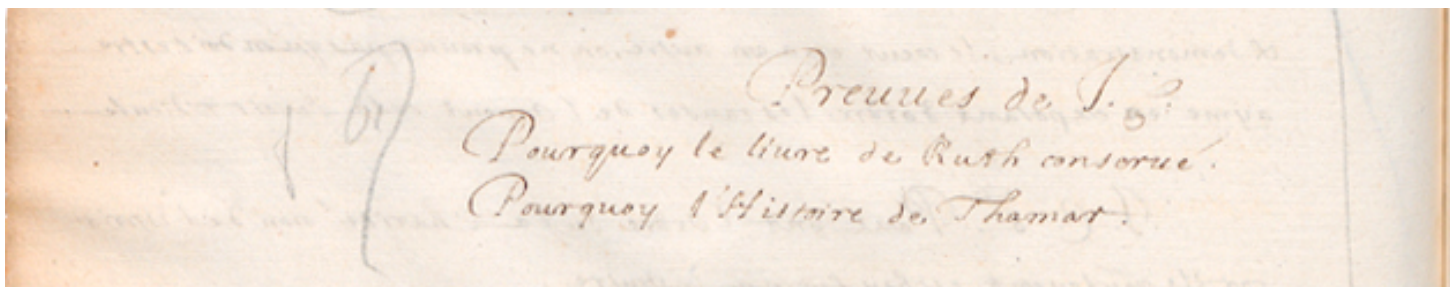 Preuues de J.
Pourquoy le liure de Ruth conserué.
Pourquoy l'Histoire de Thamar.